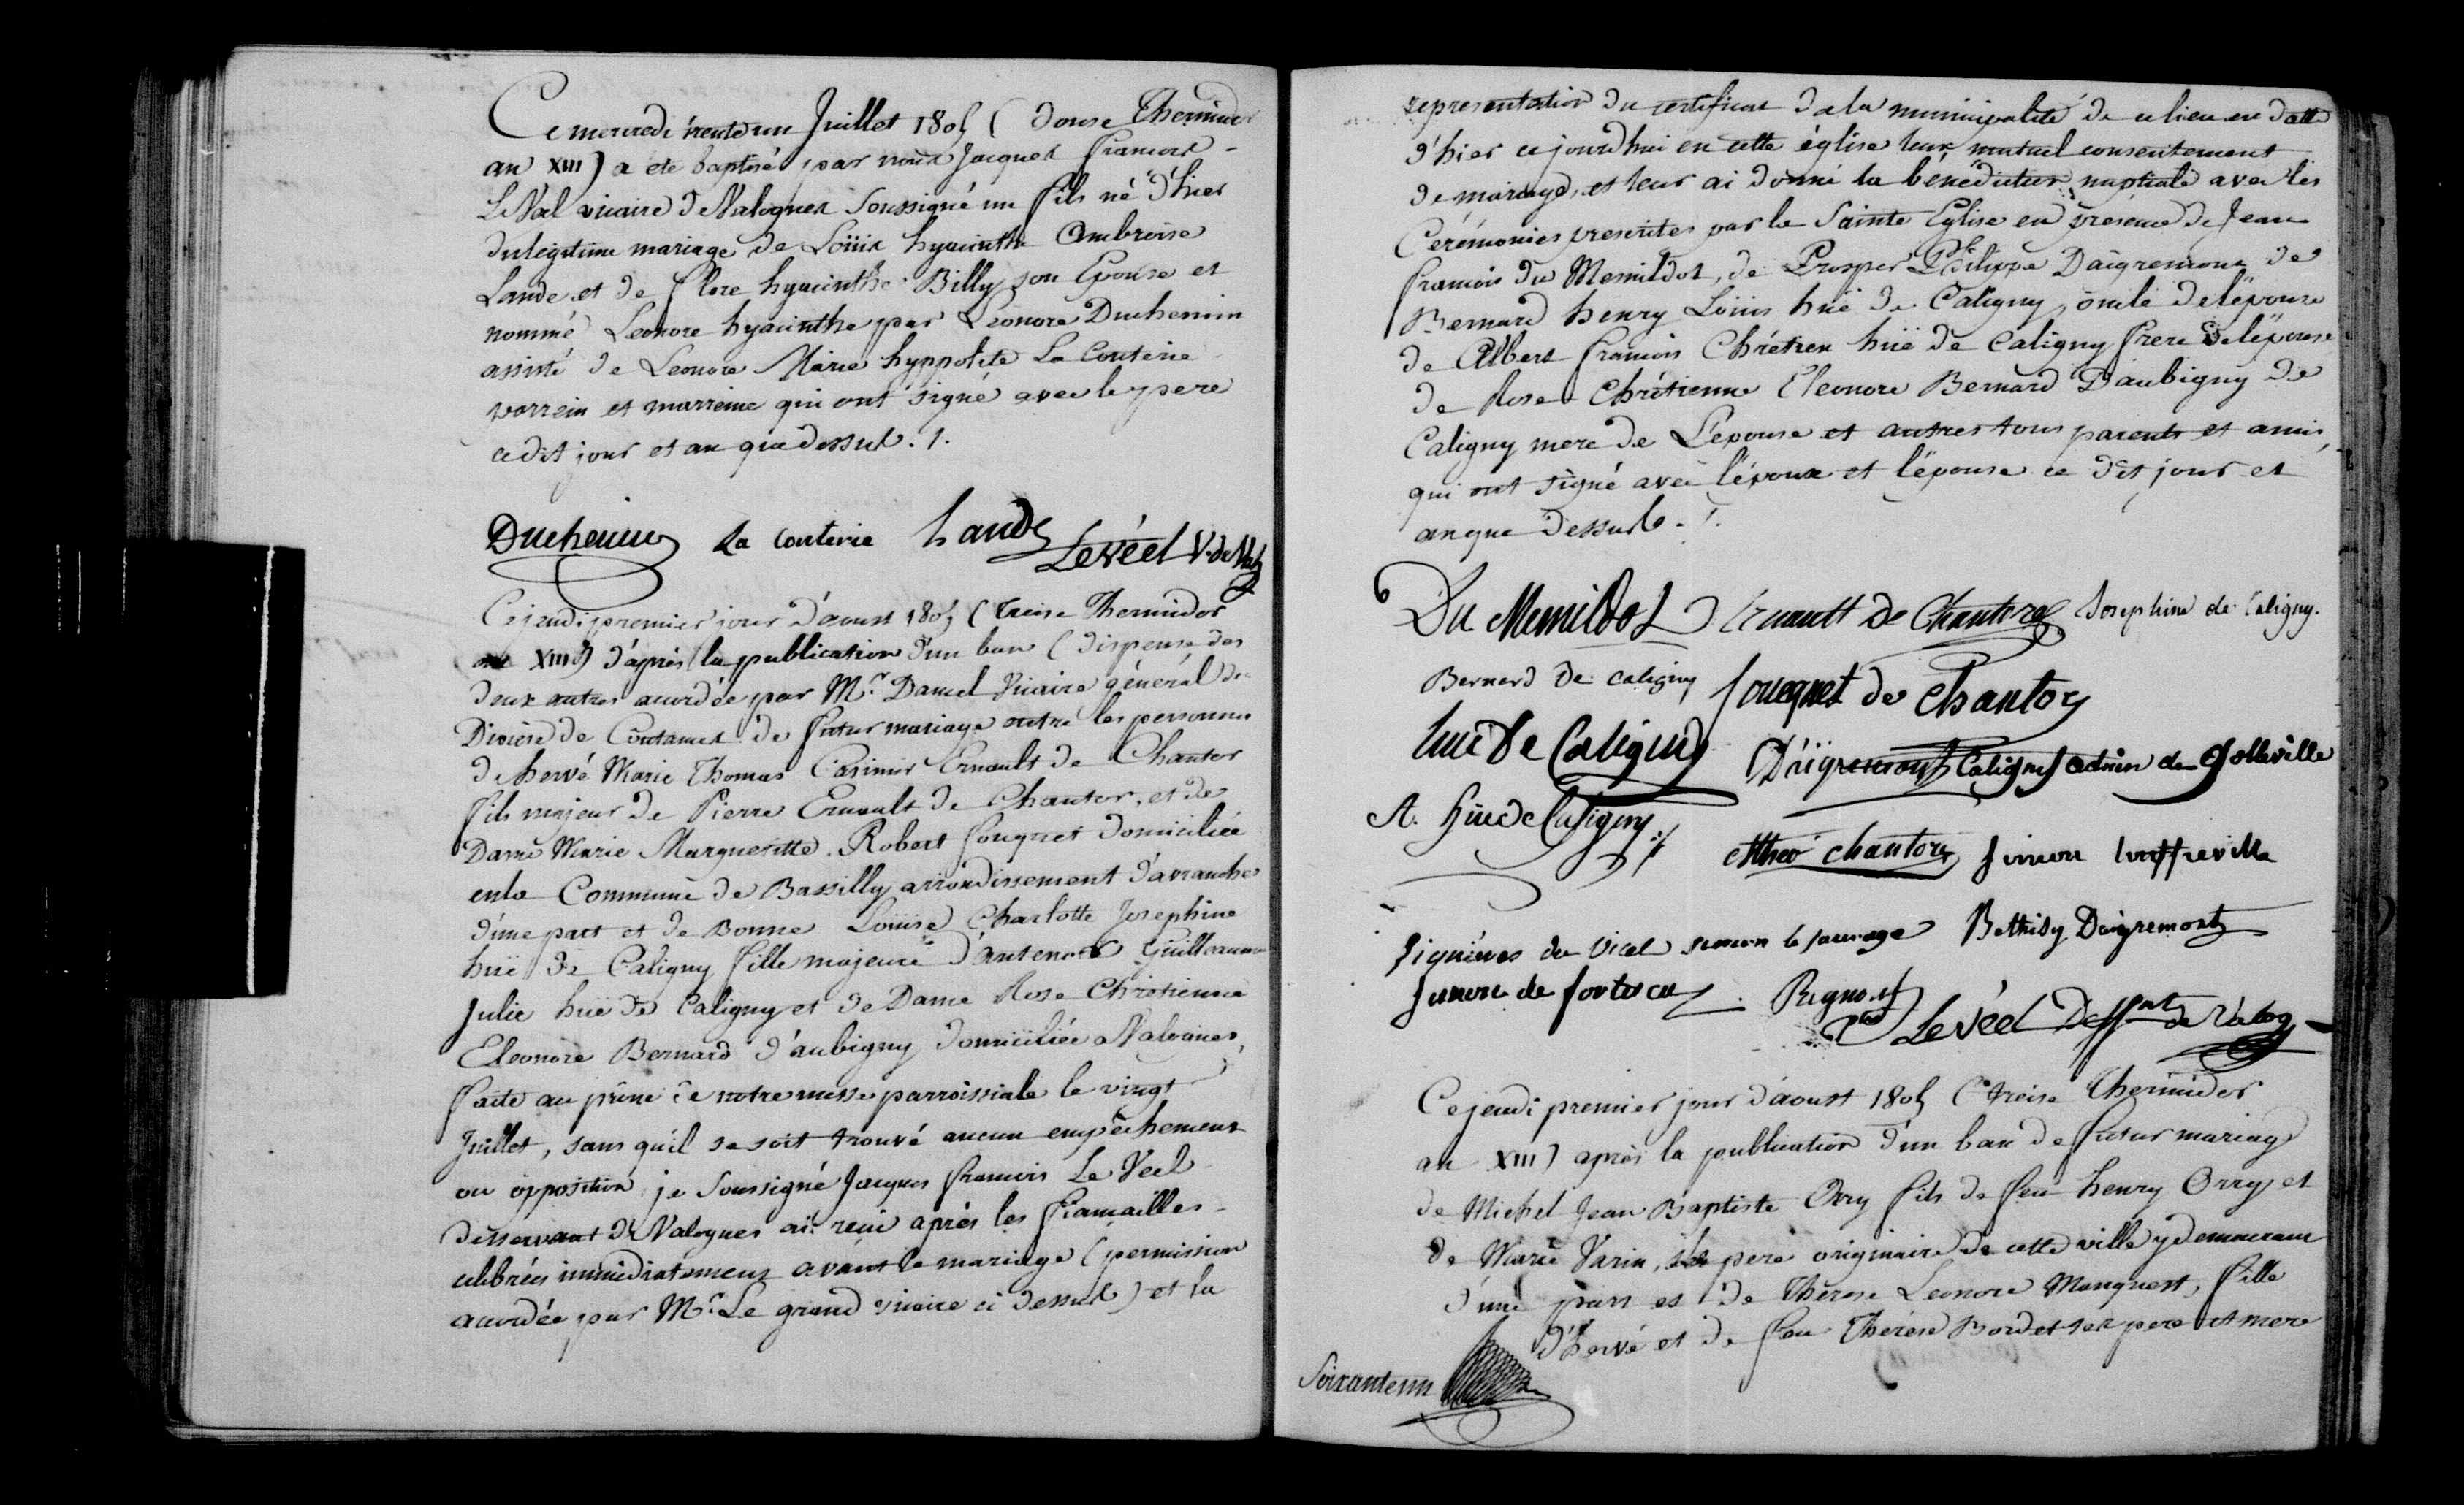 Ce mercredi trente un Juillet 1805 ( douse Thermidor
an XIII ) a eté baptisé par nous Jacques francois
LeVéel vicaire de Valognes soussigné un fils né d'hier
du legitime mariage de Loüis hyacinthe Ambroise
Lande et de flore hyacinthe Billy son Epouse et
nommé Leonore hyacinthe par Leonore Duchemin
assisté de Leonore Marie hyppolite La Couterie
parrein et marreine qui ont signé avec le pere
ce dit jour et an que dessus. /.
Duchemin La Couterie Lande LeVéel V. de Val
Ce jeudi premier jour d'aoust 1805 ( treise Thermidor
an XIII ) d'après la publication d'un ban ( dispense des
deux autres acordée par Mr. Daniel Vicaire général du
Diocèse de Coutances de futur mariage entre les personnes
de hervé Marie Thomas Casimir Ernault de Chantor
fils majeur de Pierre Ernault de Chantor, et de
Dame Marie Margueritte Robert fouquet domiciliée
en la Commune de Bassilly arrondissement d'avranches
d'une part et de Bonne Loüise Charlotte Josephine
huë de Caligny fille majeure d'antenor Guillaume
Julie huë de Caligny et de Dame Rose Chrétienne
Eleonore Bernard d'aubigny domiciliée a Valognes,
faite au prône de notre messe parroissiale le vingt
Juillet, sans qu'il se soit trouvé aucun empêchement
ou opposition je soussigné Jacques francois Le Véel
desservant de Valognes ai reçu après les fiançailles
celebrées immediatement avant le mariage ( permission
acordée par Mr. Le grand vicaire ci dessus ) et la
representation du certificat de la municipalité de ce lieu en datte
d'hier ce jourd'hui en cette église leur mutuel consentement
de mariage, et leur ai donné la bénédiction nuptiale avec les
Cérémonies prescrites par la Sainte Eglise en présence de Jean
francois du Mesnildot, de Prosper Philippe Daigremont de
Bernard henry Loüis huë de Caligny, oncle de l'épouse
de Albert francois Chrétien huë de Caligny frere de l'épouse
de Rose Chrétienne Eleonore Bernard D'aubigny de
Caligny mere de L'épouse et autres tous parents et amis,
qui ont signé avec l'époux et l'épouse ce dit jour et
an que dessus. /.
Du Mesnildot Ernault de Chantore Josephine de Caligny.
Bernard de Caligny fouquet de Chantor
hue De Caligny Daigremont Caligny de Golleville
A. Hüe de Caligny
Chantore Simon
du Vicel simon le sauvage Daigremont
simon de
LeVéel Dessnt de Valog
Ce jeudi premier jour d'aoust 1805 ( treise Thermidor
an XIII ) après la publication d'un ban de futur mariage
de Michel Jean Baptiste Orry fils de feu henry Orry et
de Marie Varin, pere originaire de cette ville y demeurant
d'une part et de Thérese Leonore Manquest, fille
d'hervé et de feu Thérèse Bordet ses pere et mere
Soixanteun